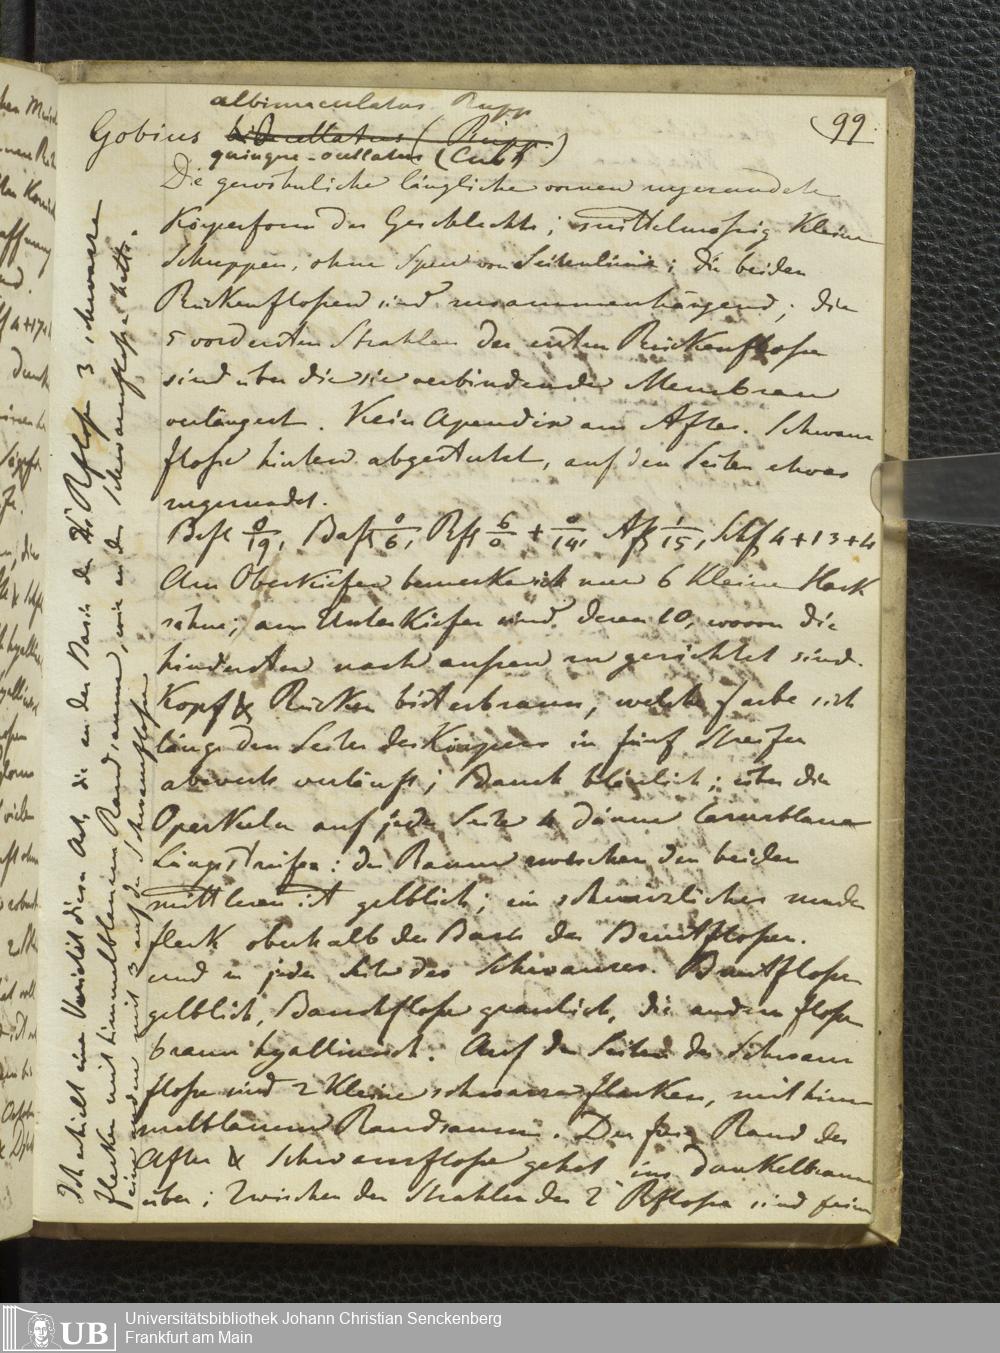 albimaculatus Rüpp
Gobius quinque-ocellatus (Cub K.)
99
Die gewöhnliche längliche vornen zugerundete
Körperform des Geschlechts; mittelmäsig Kleine
Schuppen, ohne Spur von Seitenlinie; die beiden
Rückenflosen sind zusammenhängend; die
5 vordersten Strahlen der ersten Rückenflose
sind über die sie verbindende Membran
verlängert. Kein Apendix am After. Schwanz
flose hinten abgestutzt, auf den Seiten etwas
zugerundet.
Bsfl 0/19, Bafl 0/6, Rfl 6/0 + 0/14, Afl 1/15, Schfl 4+13+4
Am Oberkiefer bemerke ich nur 6 Kleine Hack
zähne; am Unterkiefer sind deren 10, wovon die
hindersten nach aussen zu gerichtet sind.
Kopf & Rücken bisterbraun, welche Farbe sich
längs den Seiten des Körpers in fünf Streifen
abwerts verläuft; Bauch bläulich; über die
Operkeln auf jeder Seite 4 dünne lasurblaue
Längsstreifen: der Raum zwischen den beiden
mittleren ist gelblich; ein schwärzlicher runder
fleck oberhalb der Basis der Brustflosen.
und zu jeder Seite des Schwanzes. Brustflose
gelblich, Bauchflose graulich, die andern flosen
braun hyallinisch. Auf den Seiten der Schwanz
flose sind 2 Kleine schwarze flecken, mit him-
melblauem Randsaum. Der freie Rand der
After & Schwanzflose gehet ins dunkelbraune
über; Zwischen den Strahlen der 2t Rflose sind feine
Ich erhielt eine Varietät dieser Art, die an der Basis der 2ts Rflose 3 schwarze
flecken mit himmelblauem Randsaum, wie an der Schwanzflose hatte.
eine andere mit 2 auf der Schwanzflose
Universitätsbibliothek Johann Christian Senckenberg
Frankfurt am Main
UB